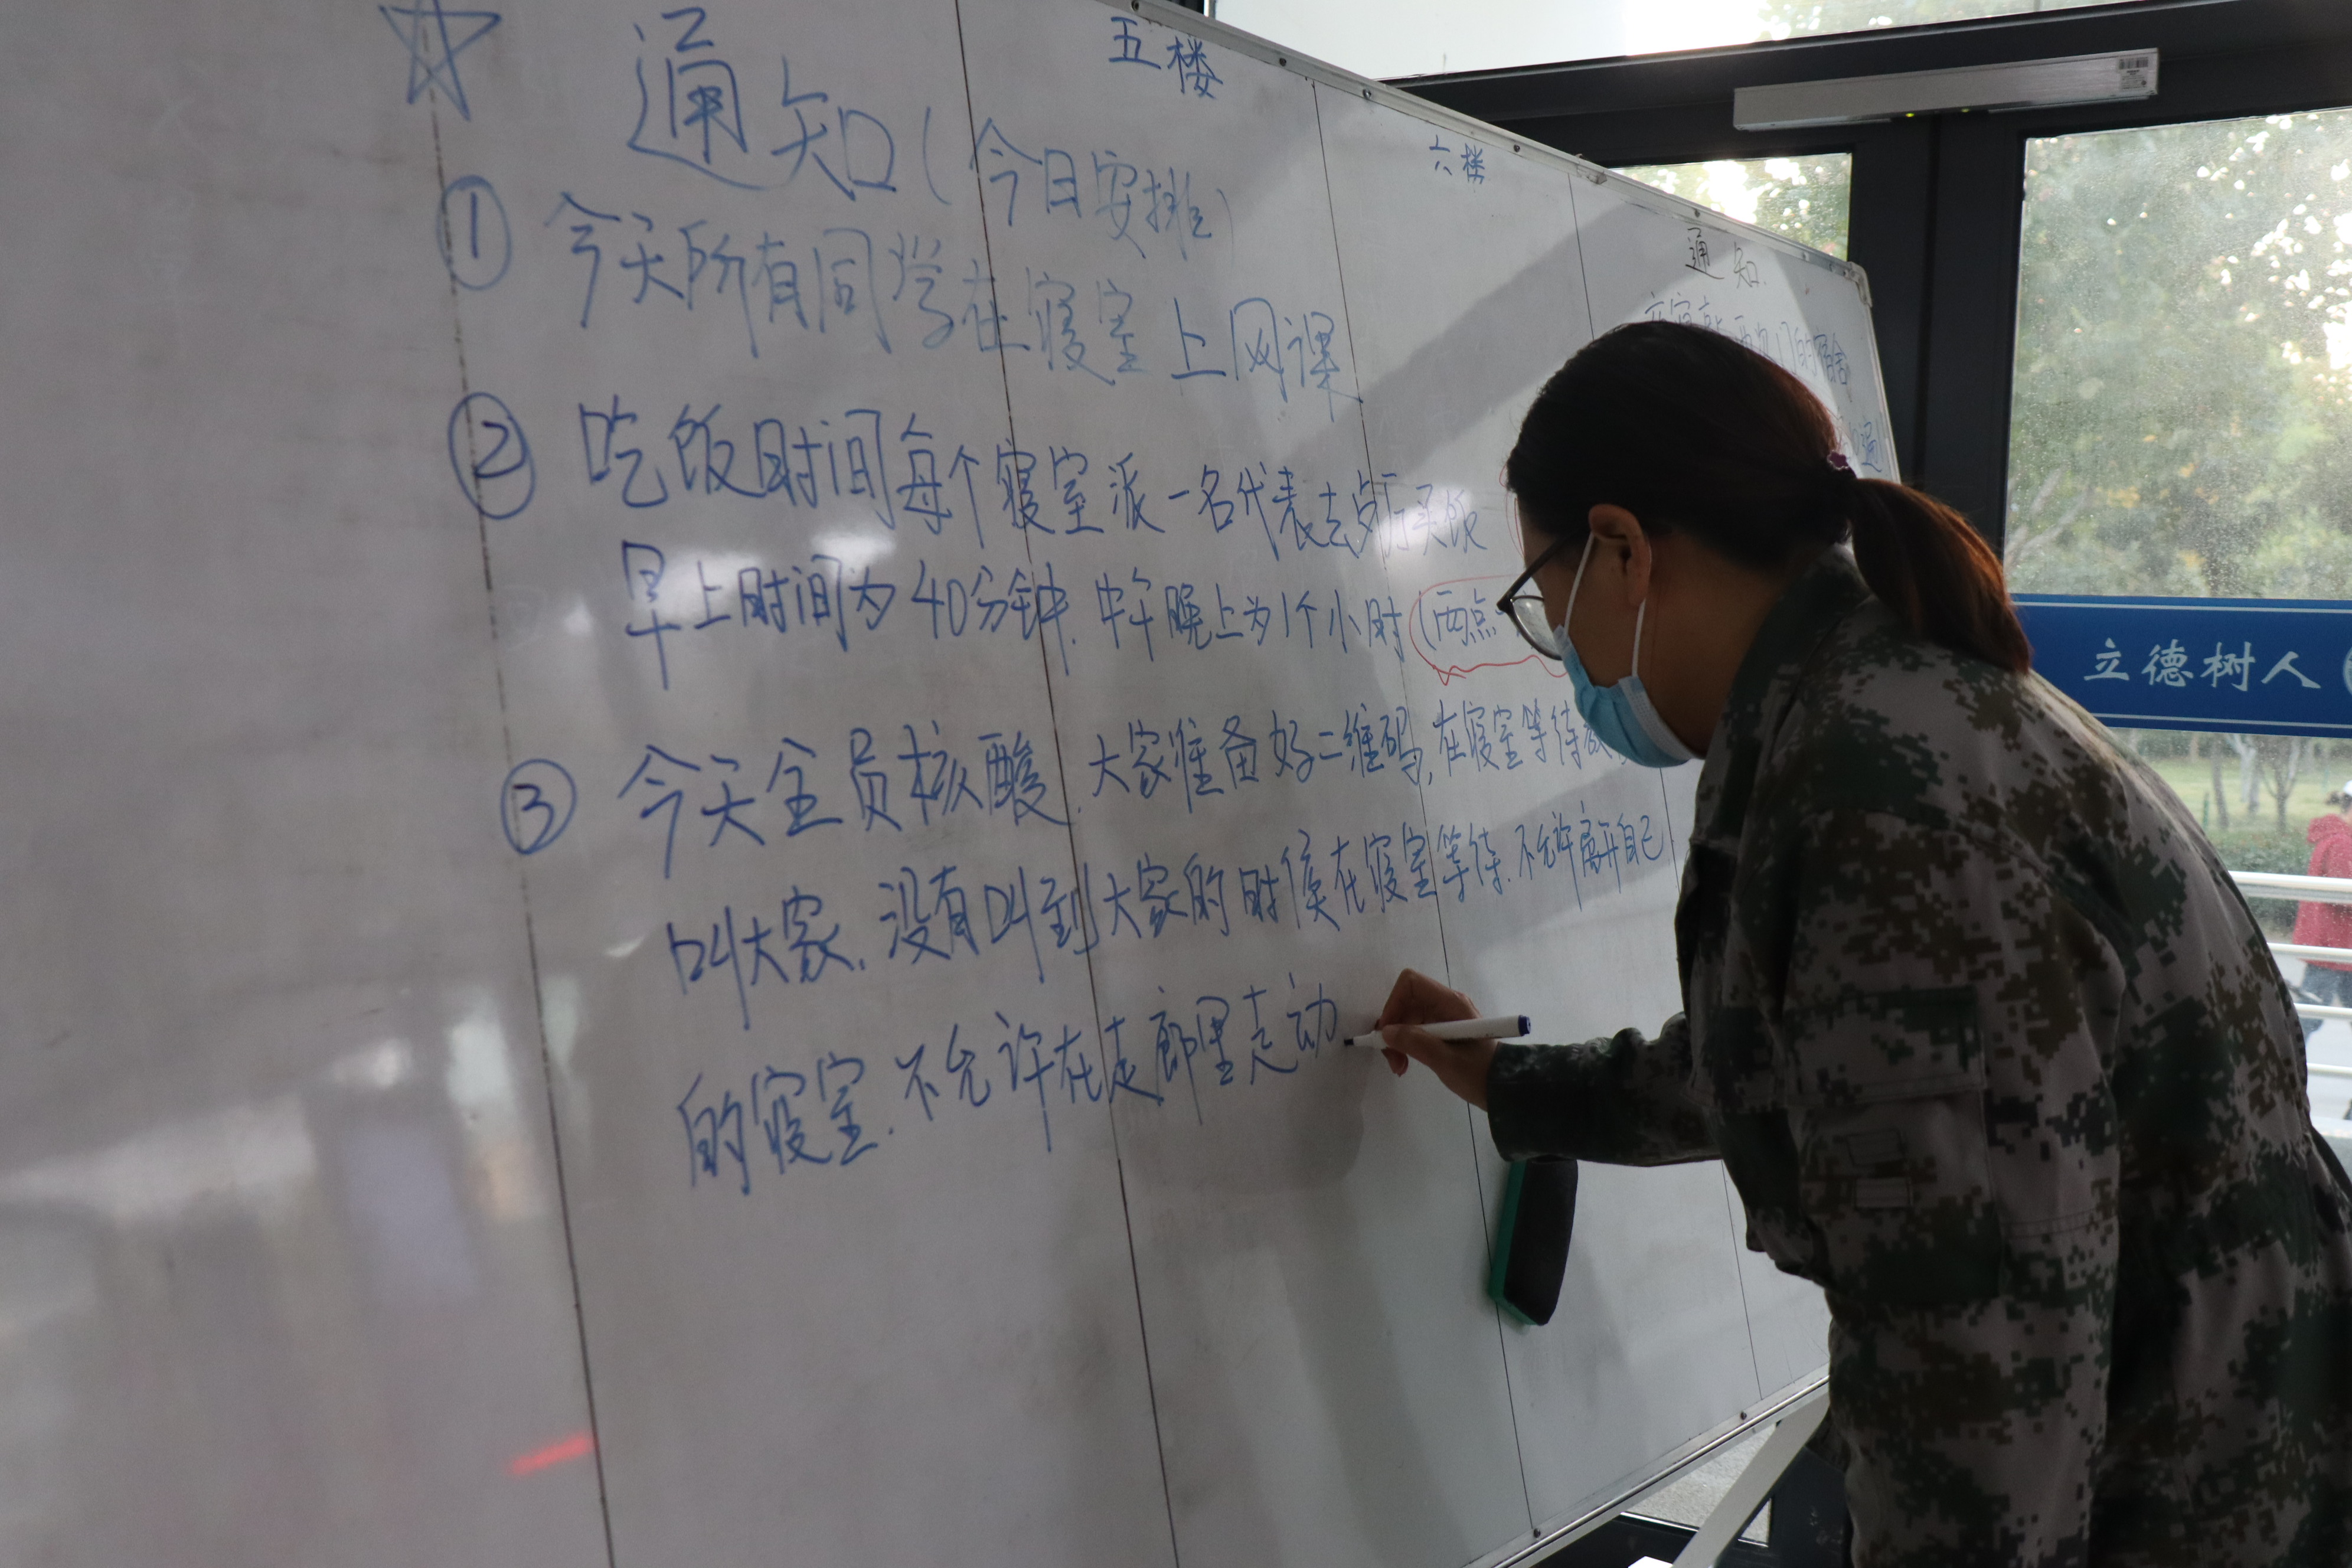 五楼
六楼
通知(今日安排)
① 今天所有同学在寝室上网课
② 吃饭时间每个寝室派一名代表去
早上时间为40分钟.中午晚上为1个小时(两点
③ 今天全员核酸.大家准备好二维码,在寝室等待
叫大家.没有叫到大家的时候在寝室等待.不允许离开自己
的寝室.不允许在走廊里走动
通知
的宿舍
通
立德树人